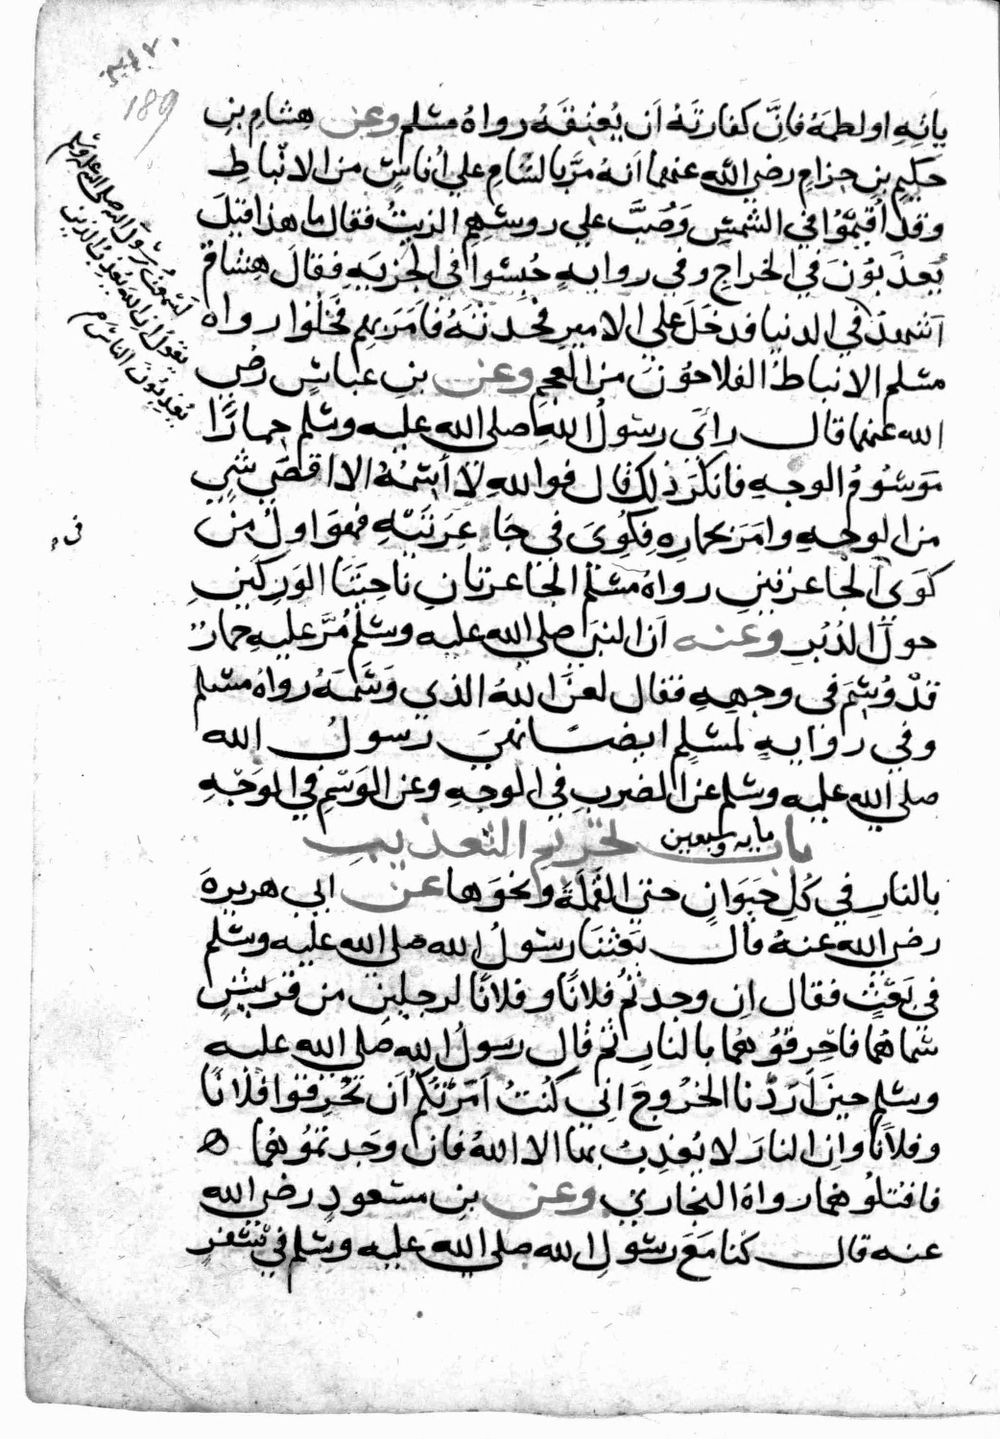 189
ياته او لطمه فانّ كفارته ان يُعتِقَهُ رواهُ مسلم وعن هشام بن
حكيم بن حزام رضي الله عنهما انه مرّ بالشام علي أُناسٍ من الانباط
وقد أُقيمُوا في الشمسِ وَصُبَّ علي روسهم الزيتُ فقال ما هذا قيل
يُعذبُونَ في الخراج وفي روايه حُبِسُوا في الجزيه فقالَ هشامُ
اشهدُ في الدنيا فدخَلَ علي الامير فحدثهُ فامَرَ بهم فخُلُّوا رواه
مسلم الانباطُ الفلاحُونَ من العجم وعن بن عباس رضي
الله عنهما قال رائَ رسُولُ اللهِ صلي الله عليه وسلم حمارًا
مَوسُومُ الوجهِ فانكَرَ ذلك قال فواللهِ لا أسِمُهُ الا اقصَي شيٍ
من الوجهِ وامَرَ بحماره فكُوِيَ في جَاعِرَتَيْهِ فهوَ اولُ من
كَوَي الجاعرتين رواهُ مسلم الجاعرتانِ ناحِيَتَا الوَرِكَينِ
حولَ الدُبُرِ وعنه ان النبيَ صلي الله عليه وسلم مُرَّ عليهِ حمارٌ
قدْ وُسِمَ في وجههِ فقال لعنَ اللهُ الذي وَسَمَهُ رواهُ مسلم
وفي روايهٍ لمسلمٍ ايضًا نهيَ رسولُ الله
صلي الله عليه وسلم عن الضربِ في الوجهِ وعن الوَسْمِ في الوَجْهِ
باب مايه وسبعين تحريم التعذيب
بالنارِ في كُلِ حَيَوَانٍ حتي القَمْلَةَ ونحوَها عن ابي هريرهَ
رضي الله عنهُ قال بَعَثَنَا رسُولُ الله صلي الله عليه وسلم
في بَعْثٍ فقال ان وجدتُمْ فلانًا وفلانًا لرجلين من قريشٍ
سَمَّاهُمَا فاحْرِقُوهُما بالنارِ ثم قال رسولُ الله صلي الله عليه
وسلم حينَ اَرَدْنا الخرُوجَ اني كُنتُ اَمَرْتُكُمْ اَن تُحْرِقوا فُلانًا
وفلانًا وان النارَ لا يُعذِبُ بها الا اللهُ فان وَجَدتمُوهُما ه
فاقتلُوهما رواهُ البخاري وعن بن مسعودٍ رضي الله
عنه قال كنا مَعَ رسُولِ الله صلي الله عليه وسلم في سَفرٍ
لسَمِعْتُ رسُولَ الله صلي الله عليه وسلم
يقول ان الله يُعذِبُ الذين
يُعذِبُونَ الناسَ م
في